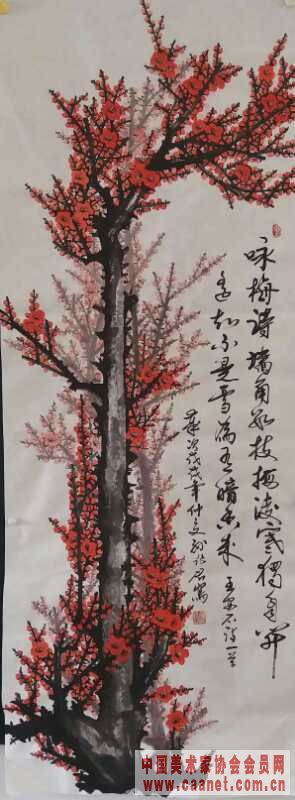 咏梅诗墙角数枝梅凌寒独自开
遥知不是雪为有暗香来 王安石诗一首
歲次戊戌年仲
中国美术家协会会员网
www.caanet.com.cn